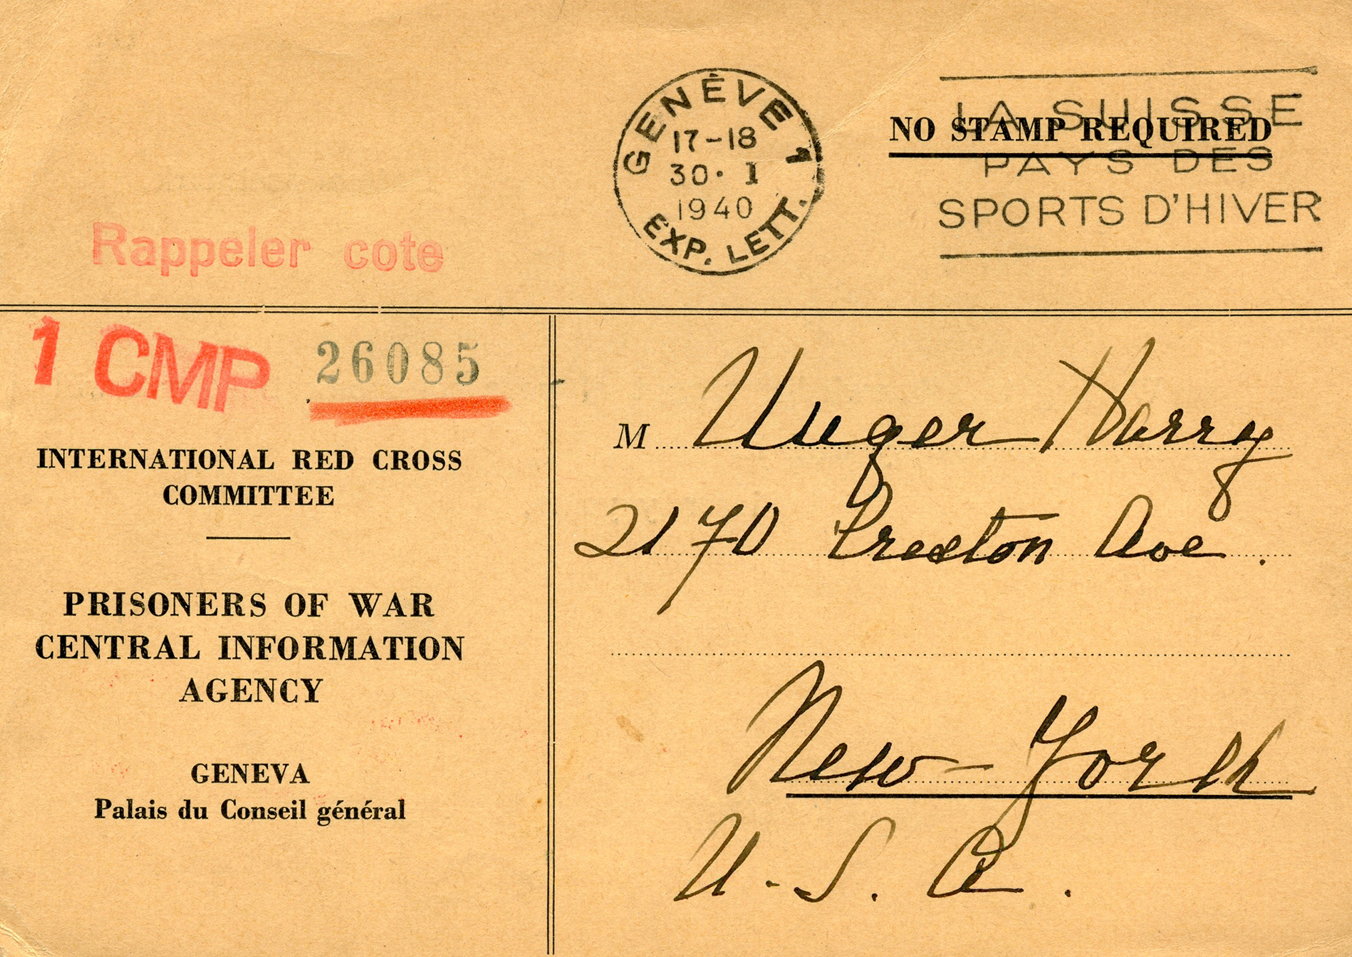 GENÈVE 1
17-18
30. I
1940
EXP. LETT.
NO STAMP REQUIRED
LA SUISSE
PAYS DES
SPORTS D'HIVER
Rappeler cote
1 CMP 26085
INTERNATIONAL RED CROSS
COMMITTEE
PRISONERS OF WAR
CENTRAL INFORMATION
AGENCY
GENEVA
Palais du Conseil général
M Unger Harry
2170 Ave.
New-York
U.S.A.